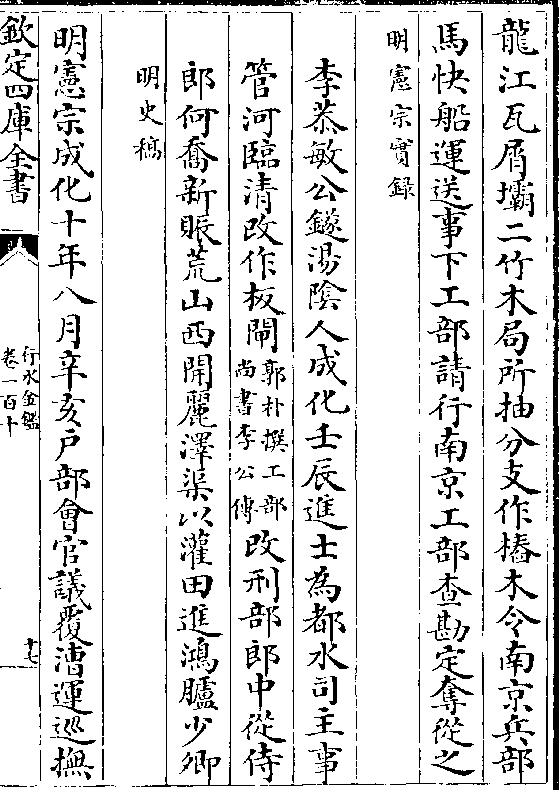 龍江瓦屑壩二竹木局所抽分支作樁木令南京兵部
馬快船運送事下工部請行南京工部查勘定奪從之
明憲宗實錄
李恭敏公鐩湯陰人成化壬辰進士為都水司主事
管河臨清改作板閘郭朴撰工部尚書李公傳改刑部郎中從侍
郎何喬新賑荒山西開麗澤渠以灌田進鴻臚少卿
明史稿
明憲宗成化十年八月辛亥戶部會官議覆漕運巡撫
欽定四庫全書
行水金鑑
卷一百十
十七